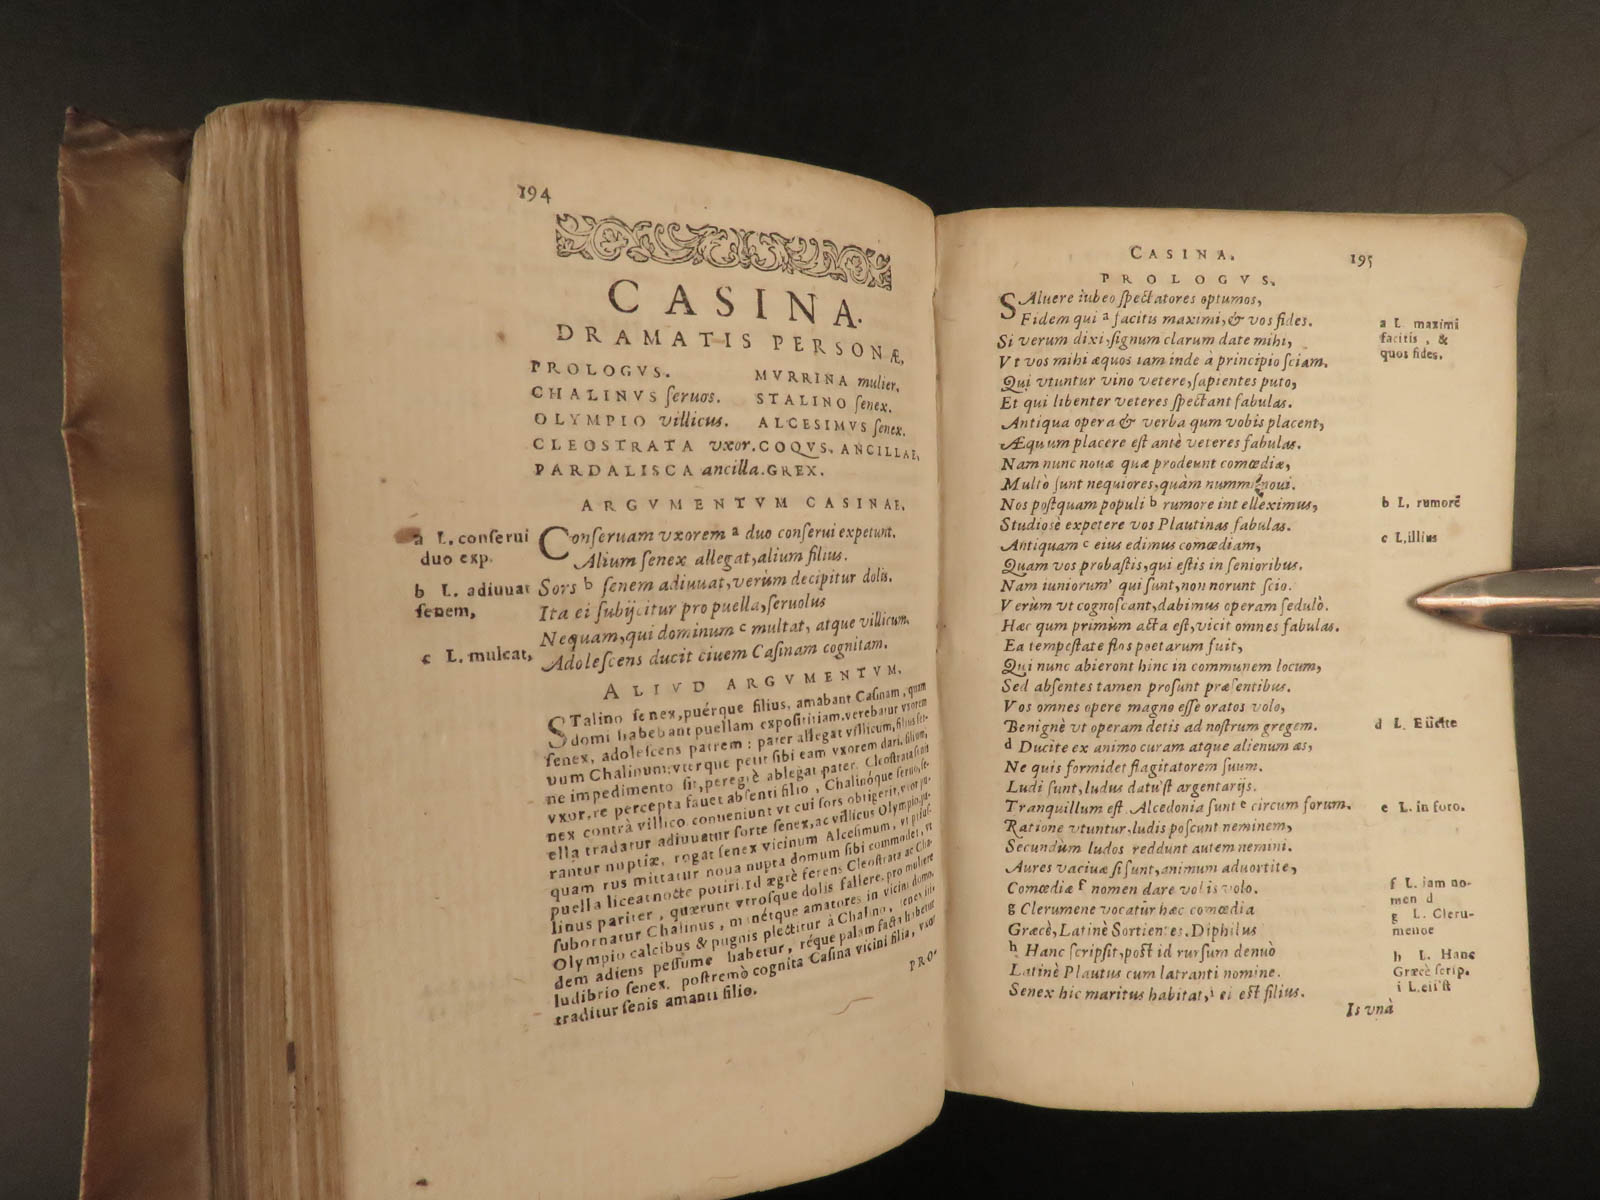 194
CASINA.
DRAMATIS PERSONÆ,
PROLOGVS. MVRRINA mulier.
CHALINVS ſeruos. STALINO ſenex.
OLYMPIO villicus. ALCESIMVS ſenex.
CLEOSTRATA vxor. COQVS. ANCILLAE,
PARDALISCA ancilla. GREX.
ARGVMENTVM CASINAE.
a L. conſerui
duo exp.
b L. adiuuat
ſenem,
c L. mulcat,
Conſeruam vxorem a duo conſerui expetunt.
Alium ſenex allegat, alium filius.
Sors b ſenem adiuuat, verùm decipitur dolis.
Ita ei ſubijcitur pro puella, ſeruolus
Nequam, qui dominum c multat, atque villicum.
Adoleſcens ducit ciuem Caſinam cognitam.
ALIVD ARGVMENTVM.
STalino ſenex, puérque filius, amabant Caſinam, quam
domi habebant puellam expoſititiam. verebatur vxorem
ſenex, adoleſcens patrem: pater allegat villicum, filius ſer-
uum Chalinum: vterque petit ſibi eam vxorem dari. filium,
ne impedimento ſit, peregrè ablegat pater. Cleoſtrata
vxor, re percepta fauet abſenti filio, Chalinóque ſeruo, ſe-
nex contrà villico. conueniunt vt cui ſors obtigerit, vxor pu-
ella tradatur adiuuatur ſorte ſenex, ac villicus Olympio. pa-
rantur nuptiæ, rogat ſenex vicinum Alceſimum, vt
quam rus mittatur noua nupta domum ſibi commodet, vt
puella liceat nocte potiri. Id ægrè ferens Cleoſtrata ac Cha-
linus pariter, quærunt vtroſque dolis fallere. pro muliere
ſubornatur Chalinus, manétque amatores in vicini domo.
Olympio calcibus & pugnis plectitur à Chalino, ſenex
dem adiens peſſume habetur, réque palam facta habetur
ludibrio ſenex. poſtremò cognita Caſina vicini filia, vxor
traditur ſenis amanti filio.
PRO-
CASINA. 195
PROLOGVS.
SAluere iubeo ſpectatores optumos,
Fidem qui a facitis maximi, & vos fides.
Si verum dixi, ſignum clarum date mihi,
Vt vos mihi æquos iam inde à principio ſciam.
Qui vtuntur vino vetere, ſapientes puto,
Et qui libenter veteres ſpectant fabulas.
Antiqua opera & verba qum vobis placent,
Æquum placere eſt antè veteres fabulas.
Nam nunc nouæ quæ prodeunt comœdiæ,
Multò ſunt nequiores, quàm nummi noui.
Nos poſtquam populi b rumore intelleximus,
Studioſè expetere vos Plautinas fabulas.
Antiquam c eius edimus comœdiam,
Quam vos probaſtis, qui eſtis in ſenioribus.
Nam iuniorum qui ſunt, non norunt ſcio.
Verùm vt cognoſcant, dabimus operam ſedulò.
Hæc qum primùm acta eſt, vicit omnes fabulas.
Ea tempeſtate flos poetarum fuit,
Qui nunc abierunt hinc in communem locum,
Sed abſentes tamen proſunt præſentibus.
Vos omnes opere magno eſſe oratos volo,
Benignè vt operam detis ad noſtrum gregem.
d Ducite ex animo curam atque alienum æs,
Ne quis formidet flagitatorem ſuum.
Ludi ſunt, ludus datu'ſt argentarijs.
Tranquillum eſt. Alcedonia ſunt e circum forum.
Ratione vtuntur, ludis poſcunt neminem,
Secundum ludos reddunt autem nemini.
Aures vaciuæ ſi ſunt, animum aduortite,
Comœdiæ f nomen dare vobis volo.
g Clerumene vocatur hæc comœdia
Græcè, Latinè Sortientes. Diphilus
h Hanc ſcripſit, poſt id rurſum denuò
Latinè Plautus cum latranti nomine.
Senex hic maritus habitat, i ei eſt filius.
Is vnà
a L. maximi
facitis, &
quos fides.
b L. rumorē
c L. illius
d L. Eiicite
e L. in foro.
f L. iam no-
men d
g L. Cleru-
menoe
h L. Hanc
Græcè ſcrip.
i L. eii'ſt